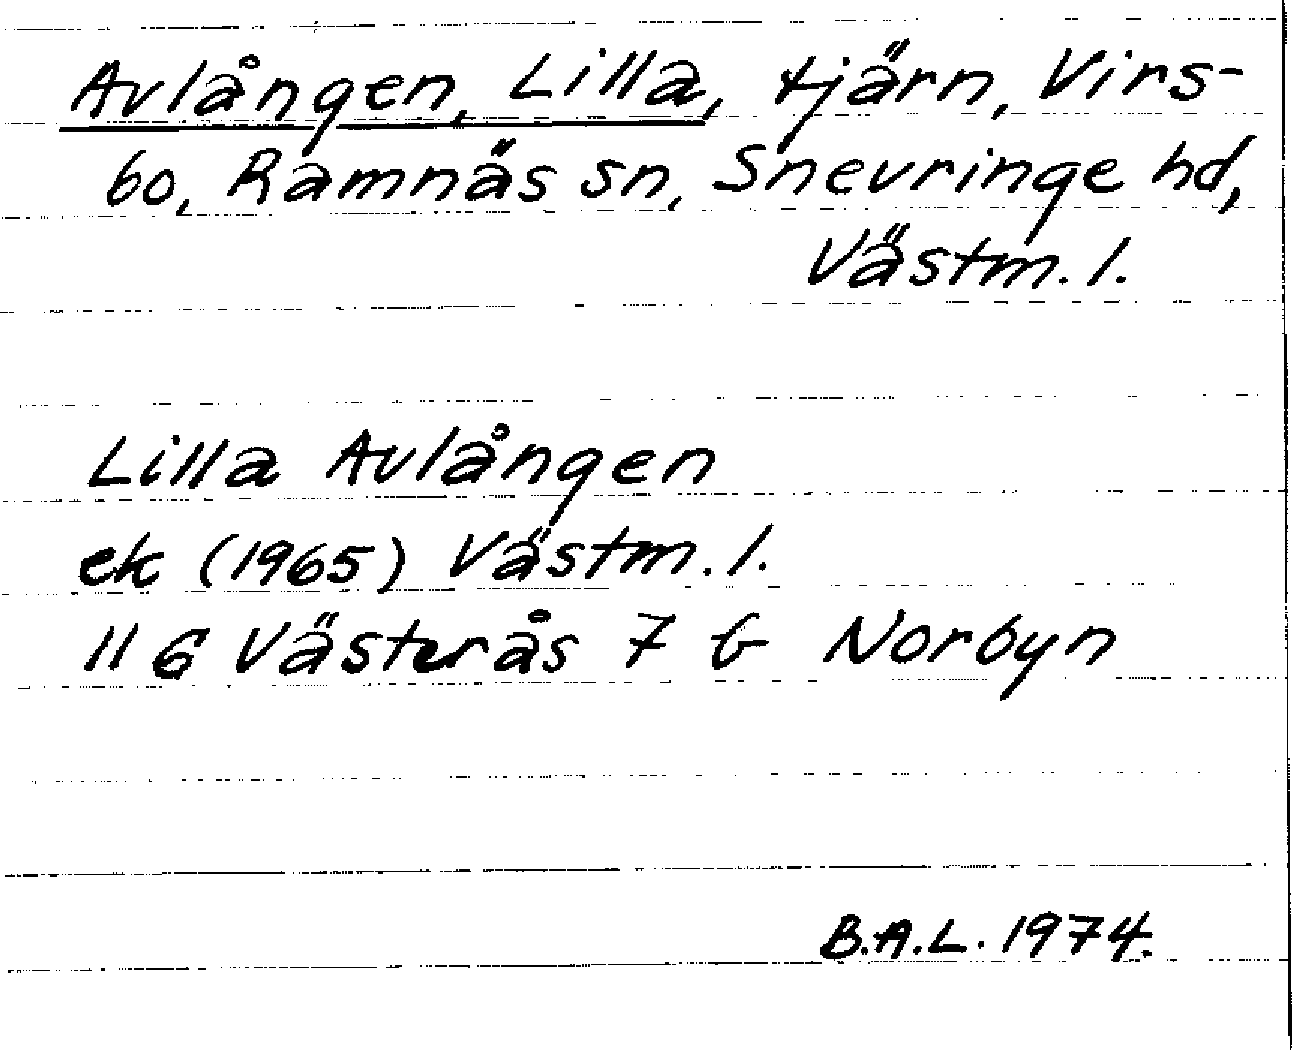 Avlången, Lilla, tjärn, Virs-
bo, Ramnäs sn, Snevringe hd,
Västm. l.
Lilla Avlången
ek (1965) Västm. l.
11 G Västerås 7 b Norbyn
B.A.L. 1974.